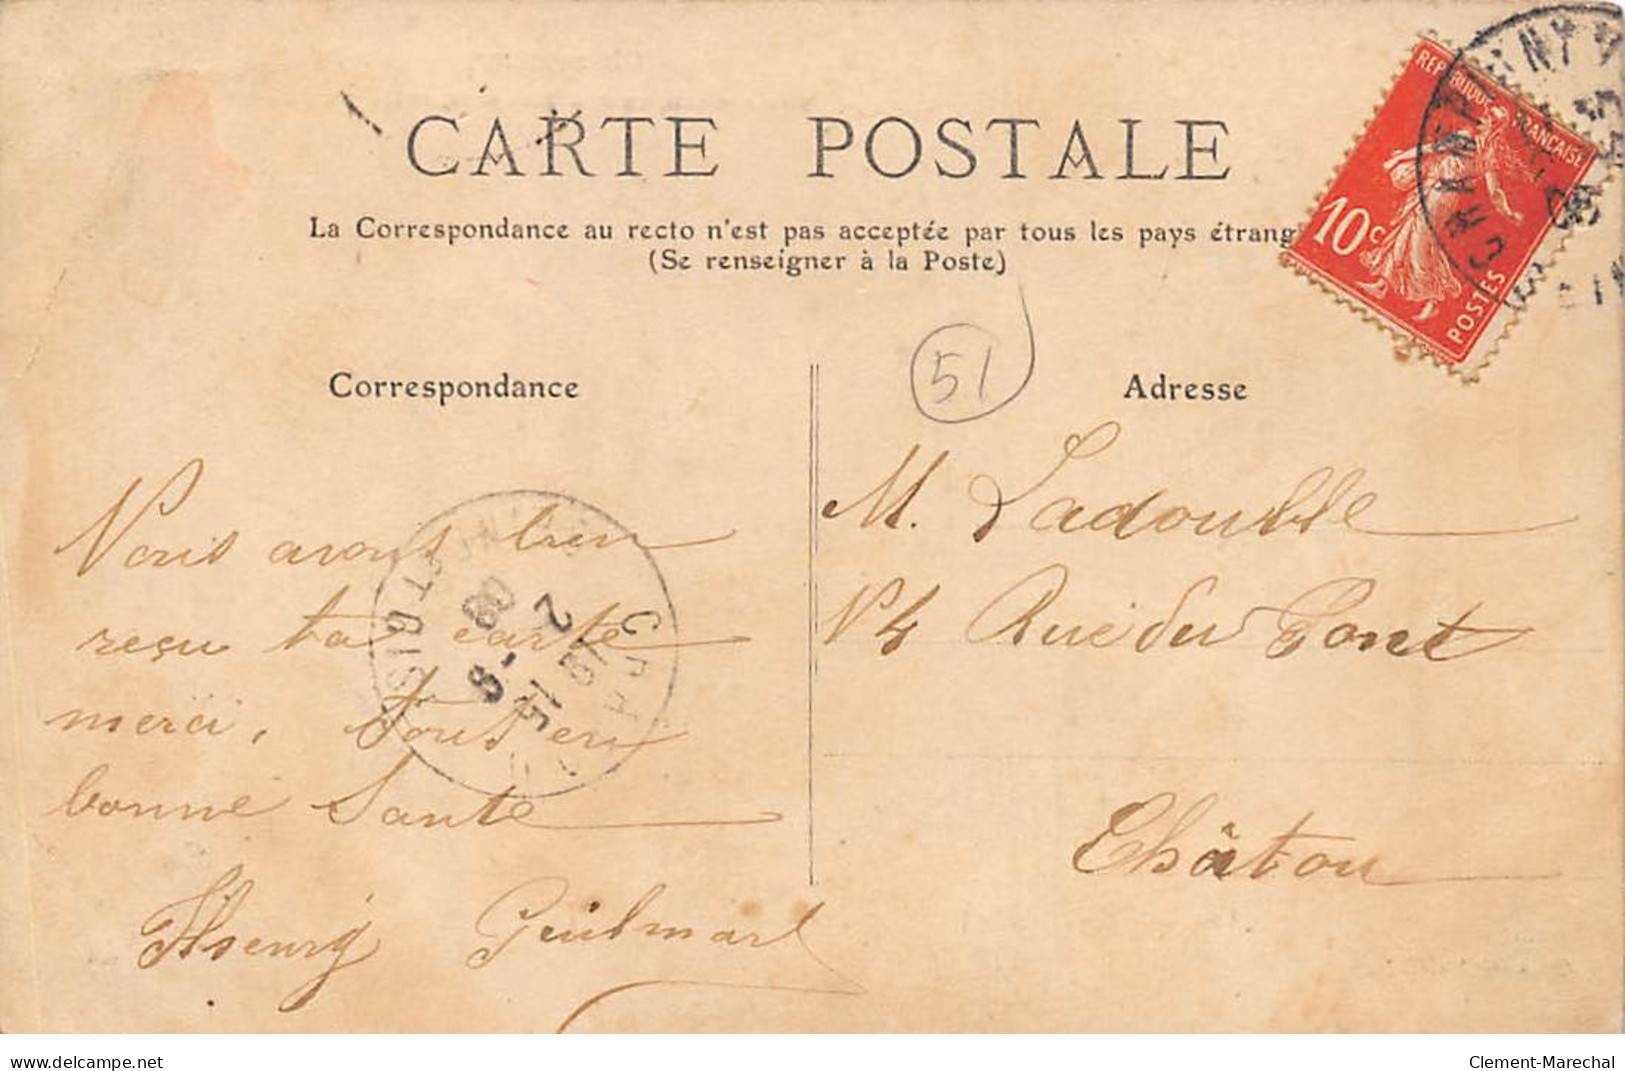 CARTE POSTALE
La Correspondance au recto n'est pas acceptée par tous les pays étrang
(Se renseigner à la Poste)
RÉPUBLIQUE FRANÇAISE
10c
POSTES
51
Correspondance
Nous avons bien
reçu ta carte
merci, tout en
bonne Santé
Henry Guilmart
Adresse
M. Ladouble
N 4 Rue du Pont
Châtou
delcampe.net
Clement-Marechal